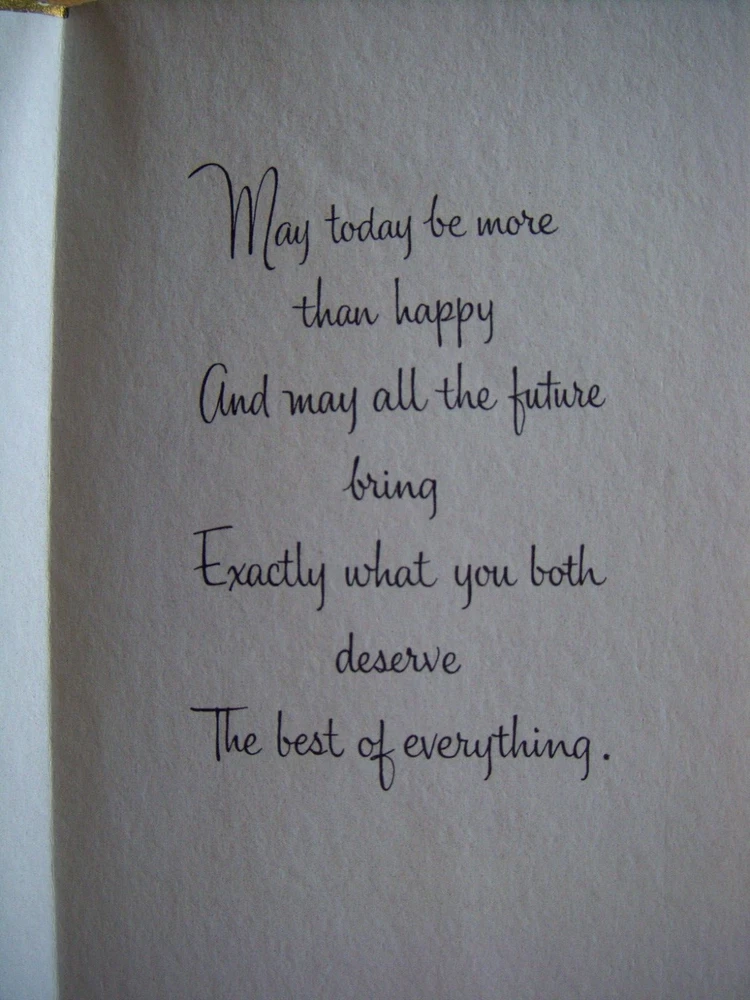 May today be more
than happy
And may all the future
bring
Exactly what you both
deserve
The best of everything.